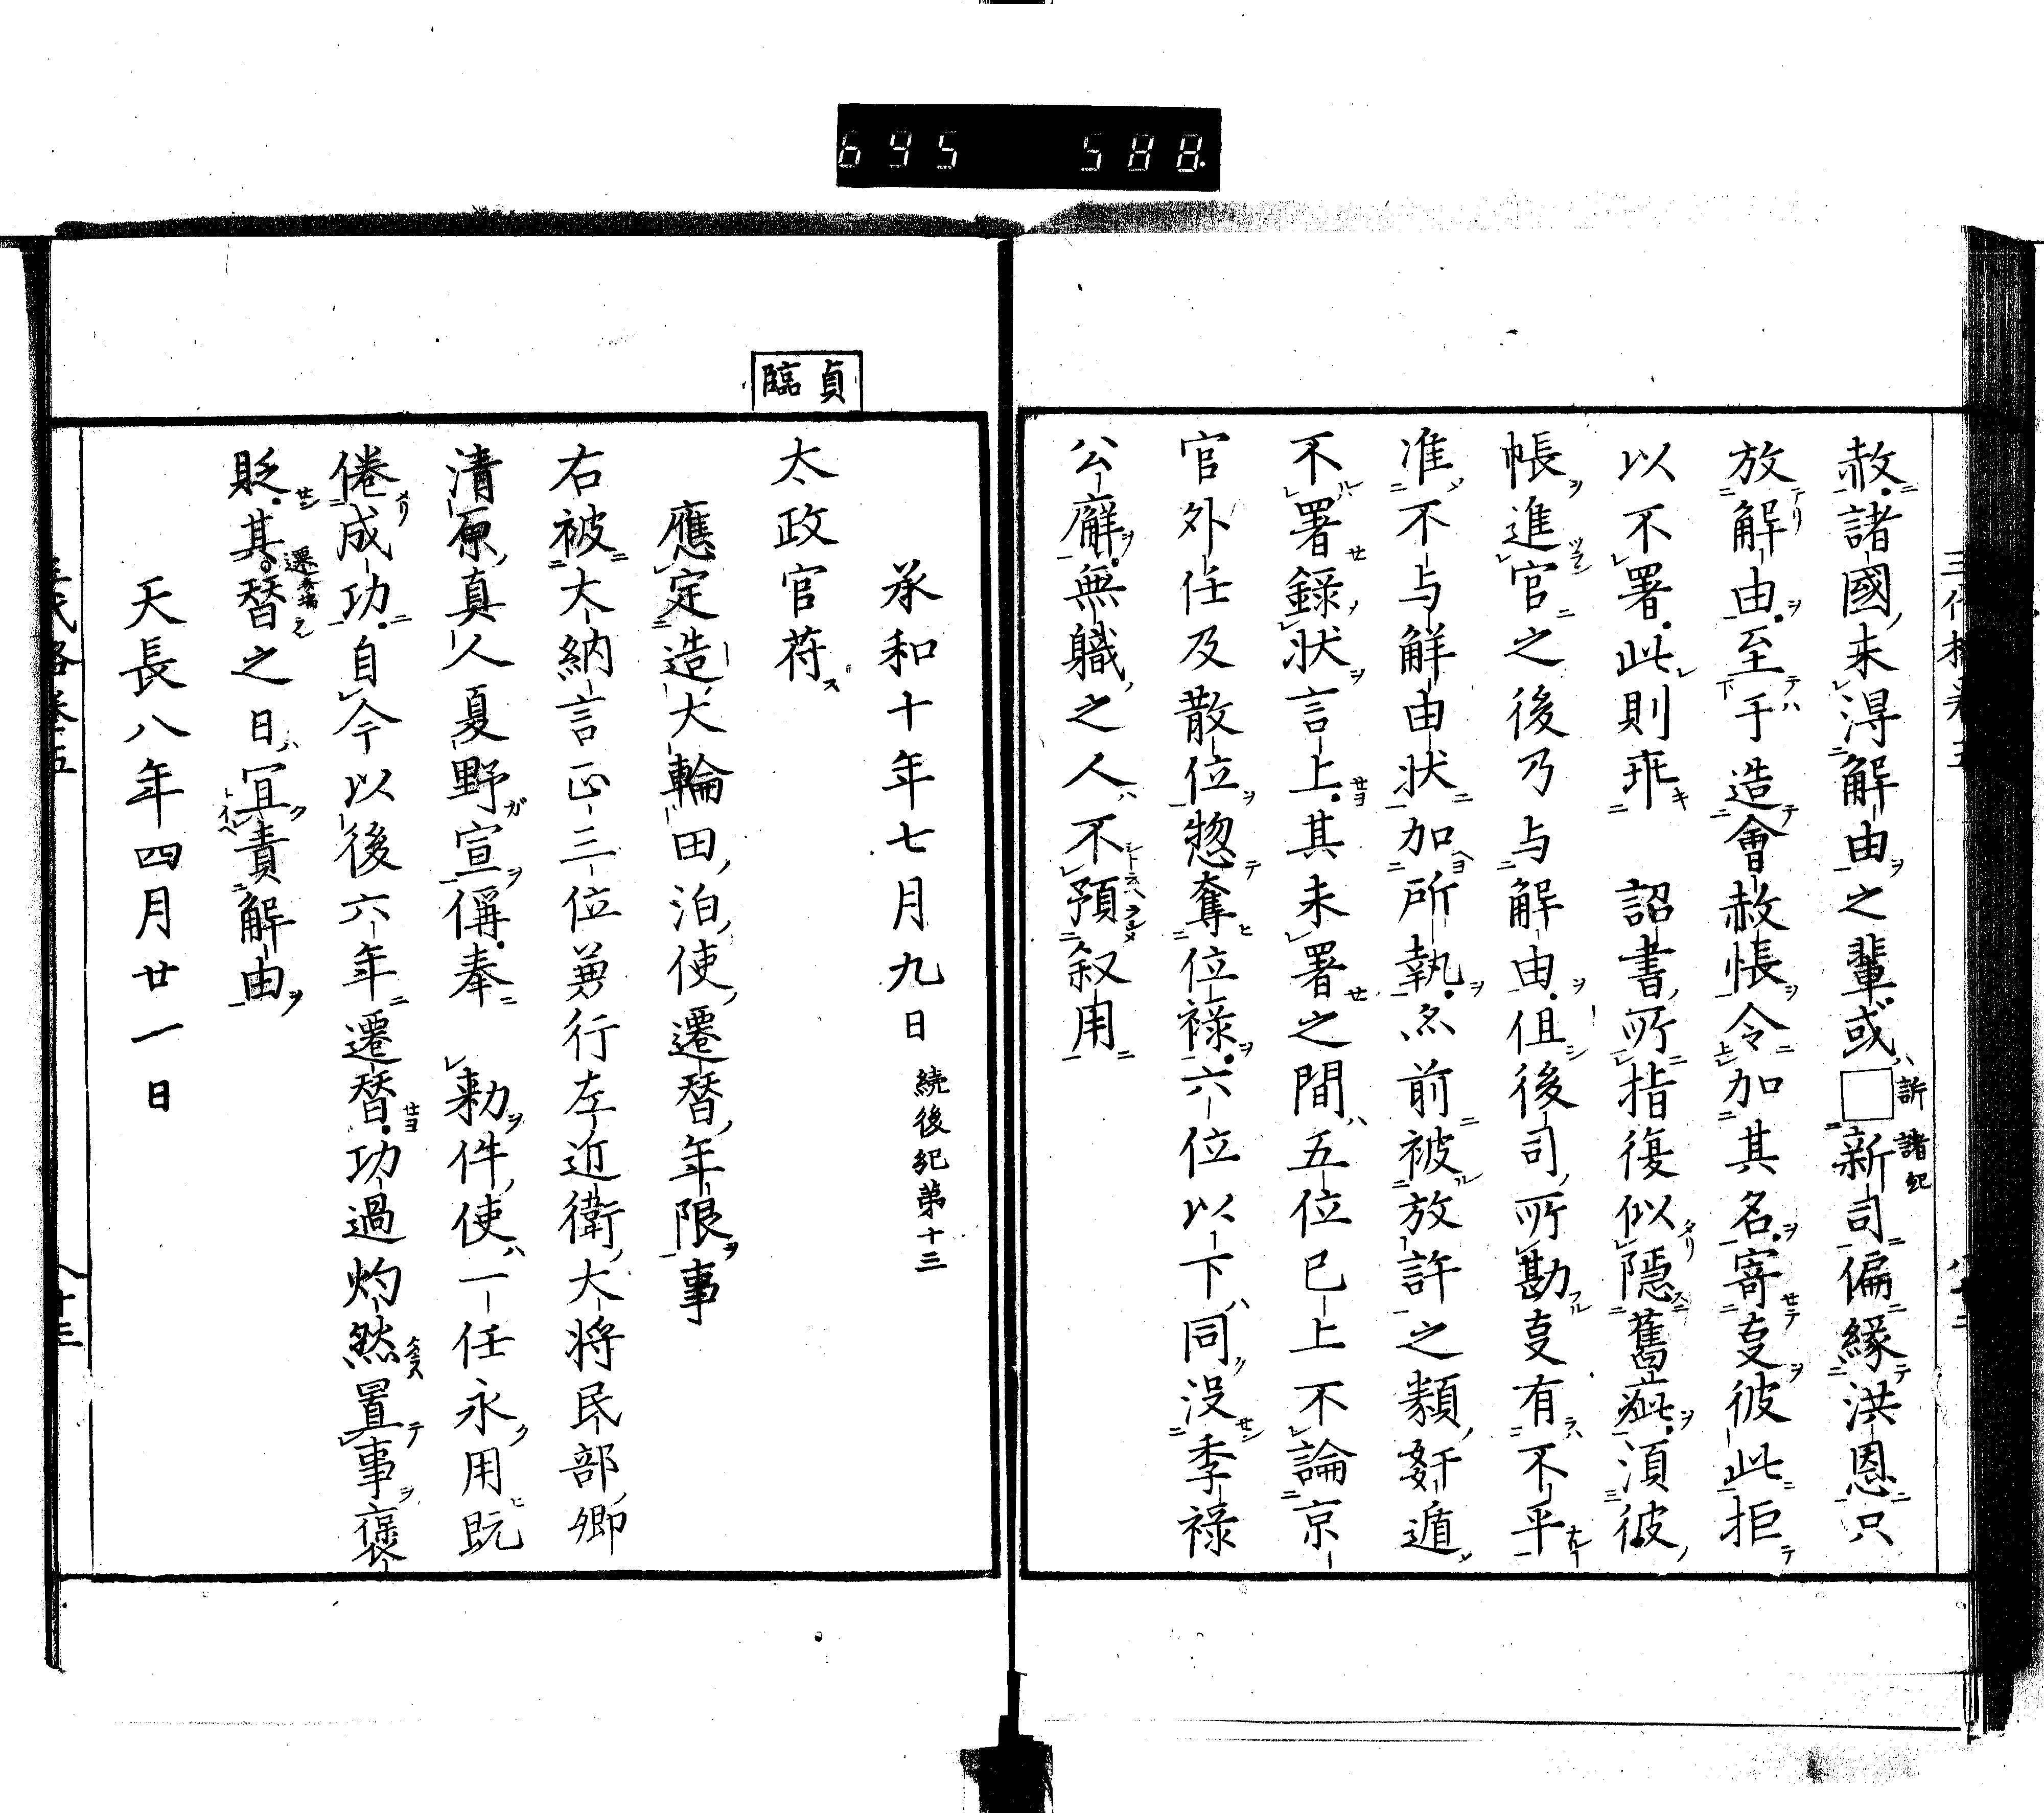 695 588.
赦諸國未得解由之輩或□新司偏緣洪恩只
訴 諸紀
放解由至于造會赦帳令加其名寄亊彼此拒
以不署此則乖 詔書所指復似隱舊疵湏彼
帳進官之後乃与解由但後司所勘亊有不平
准不与解由状加所執然前被放許之類姧遁
不署錄状言上其未署之間五位已上不論京
官外任及散位惣奪位祿六位以下同没季祿
公廨無職之人不預叙用
承和十年七月九日 続後紀第十三
貞臨
太政官符
應定造大輪田泊使遷替年限事
右被大納言正三位兼行左近衛大将民部卿
清原真人夏野宣偁奉 勅件使一任永用既
倦成功自今以後六年遷替功過灼然置事褒
貶其替之日宜責解由
遷
天長八年四月廿一日